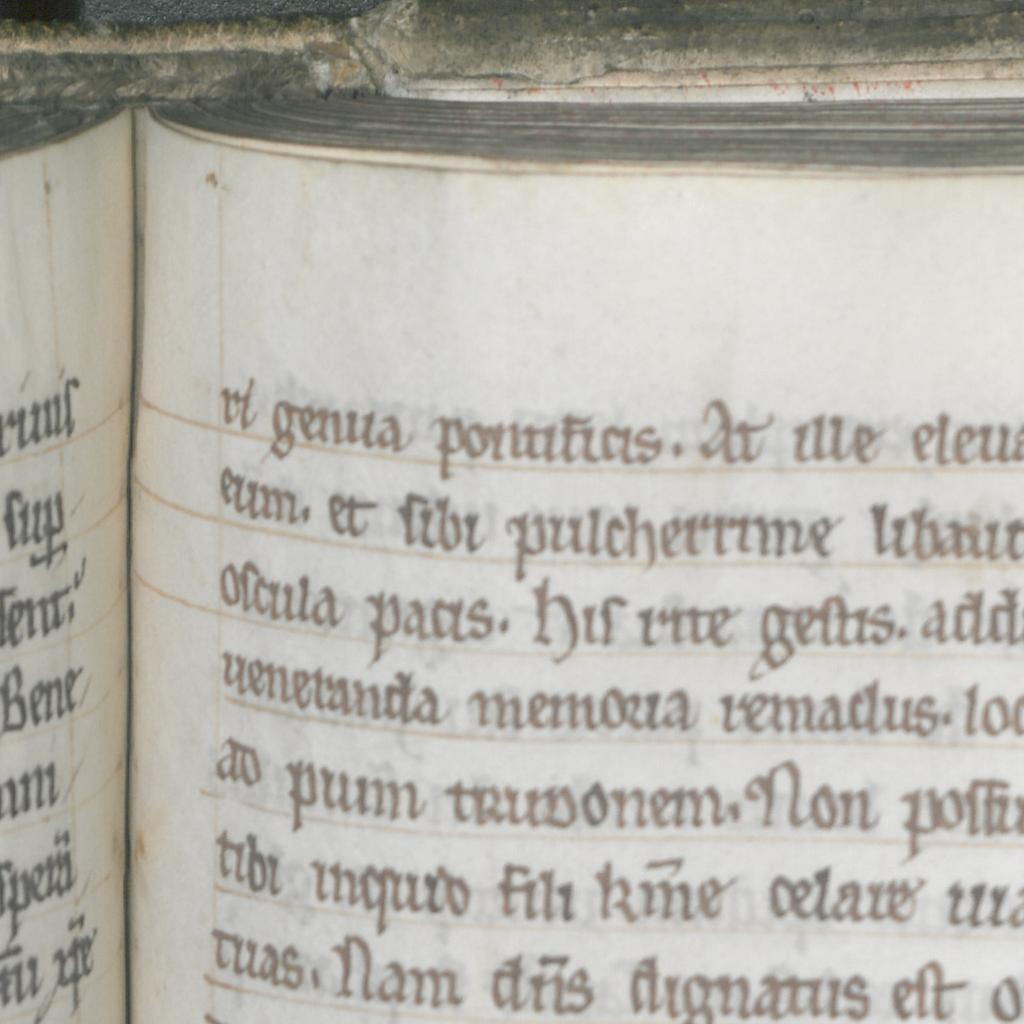 sup
Bene
ri genua pontificis. At ille eleua
eum. et sibi pulcherrime libauit
oscula pacis. His rite gestis. add
ueneranda memoria remaclus. loc
ad pium trudonem. Non possu
tibi inquid fili km̄e celare uia
tuas. Nam dn̄s dignatus est o